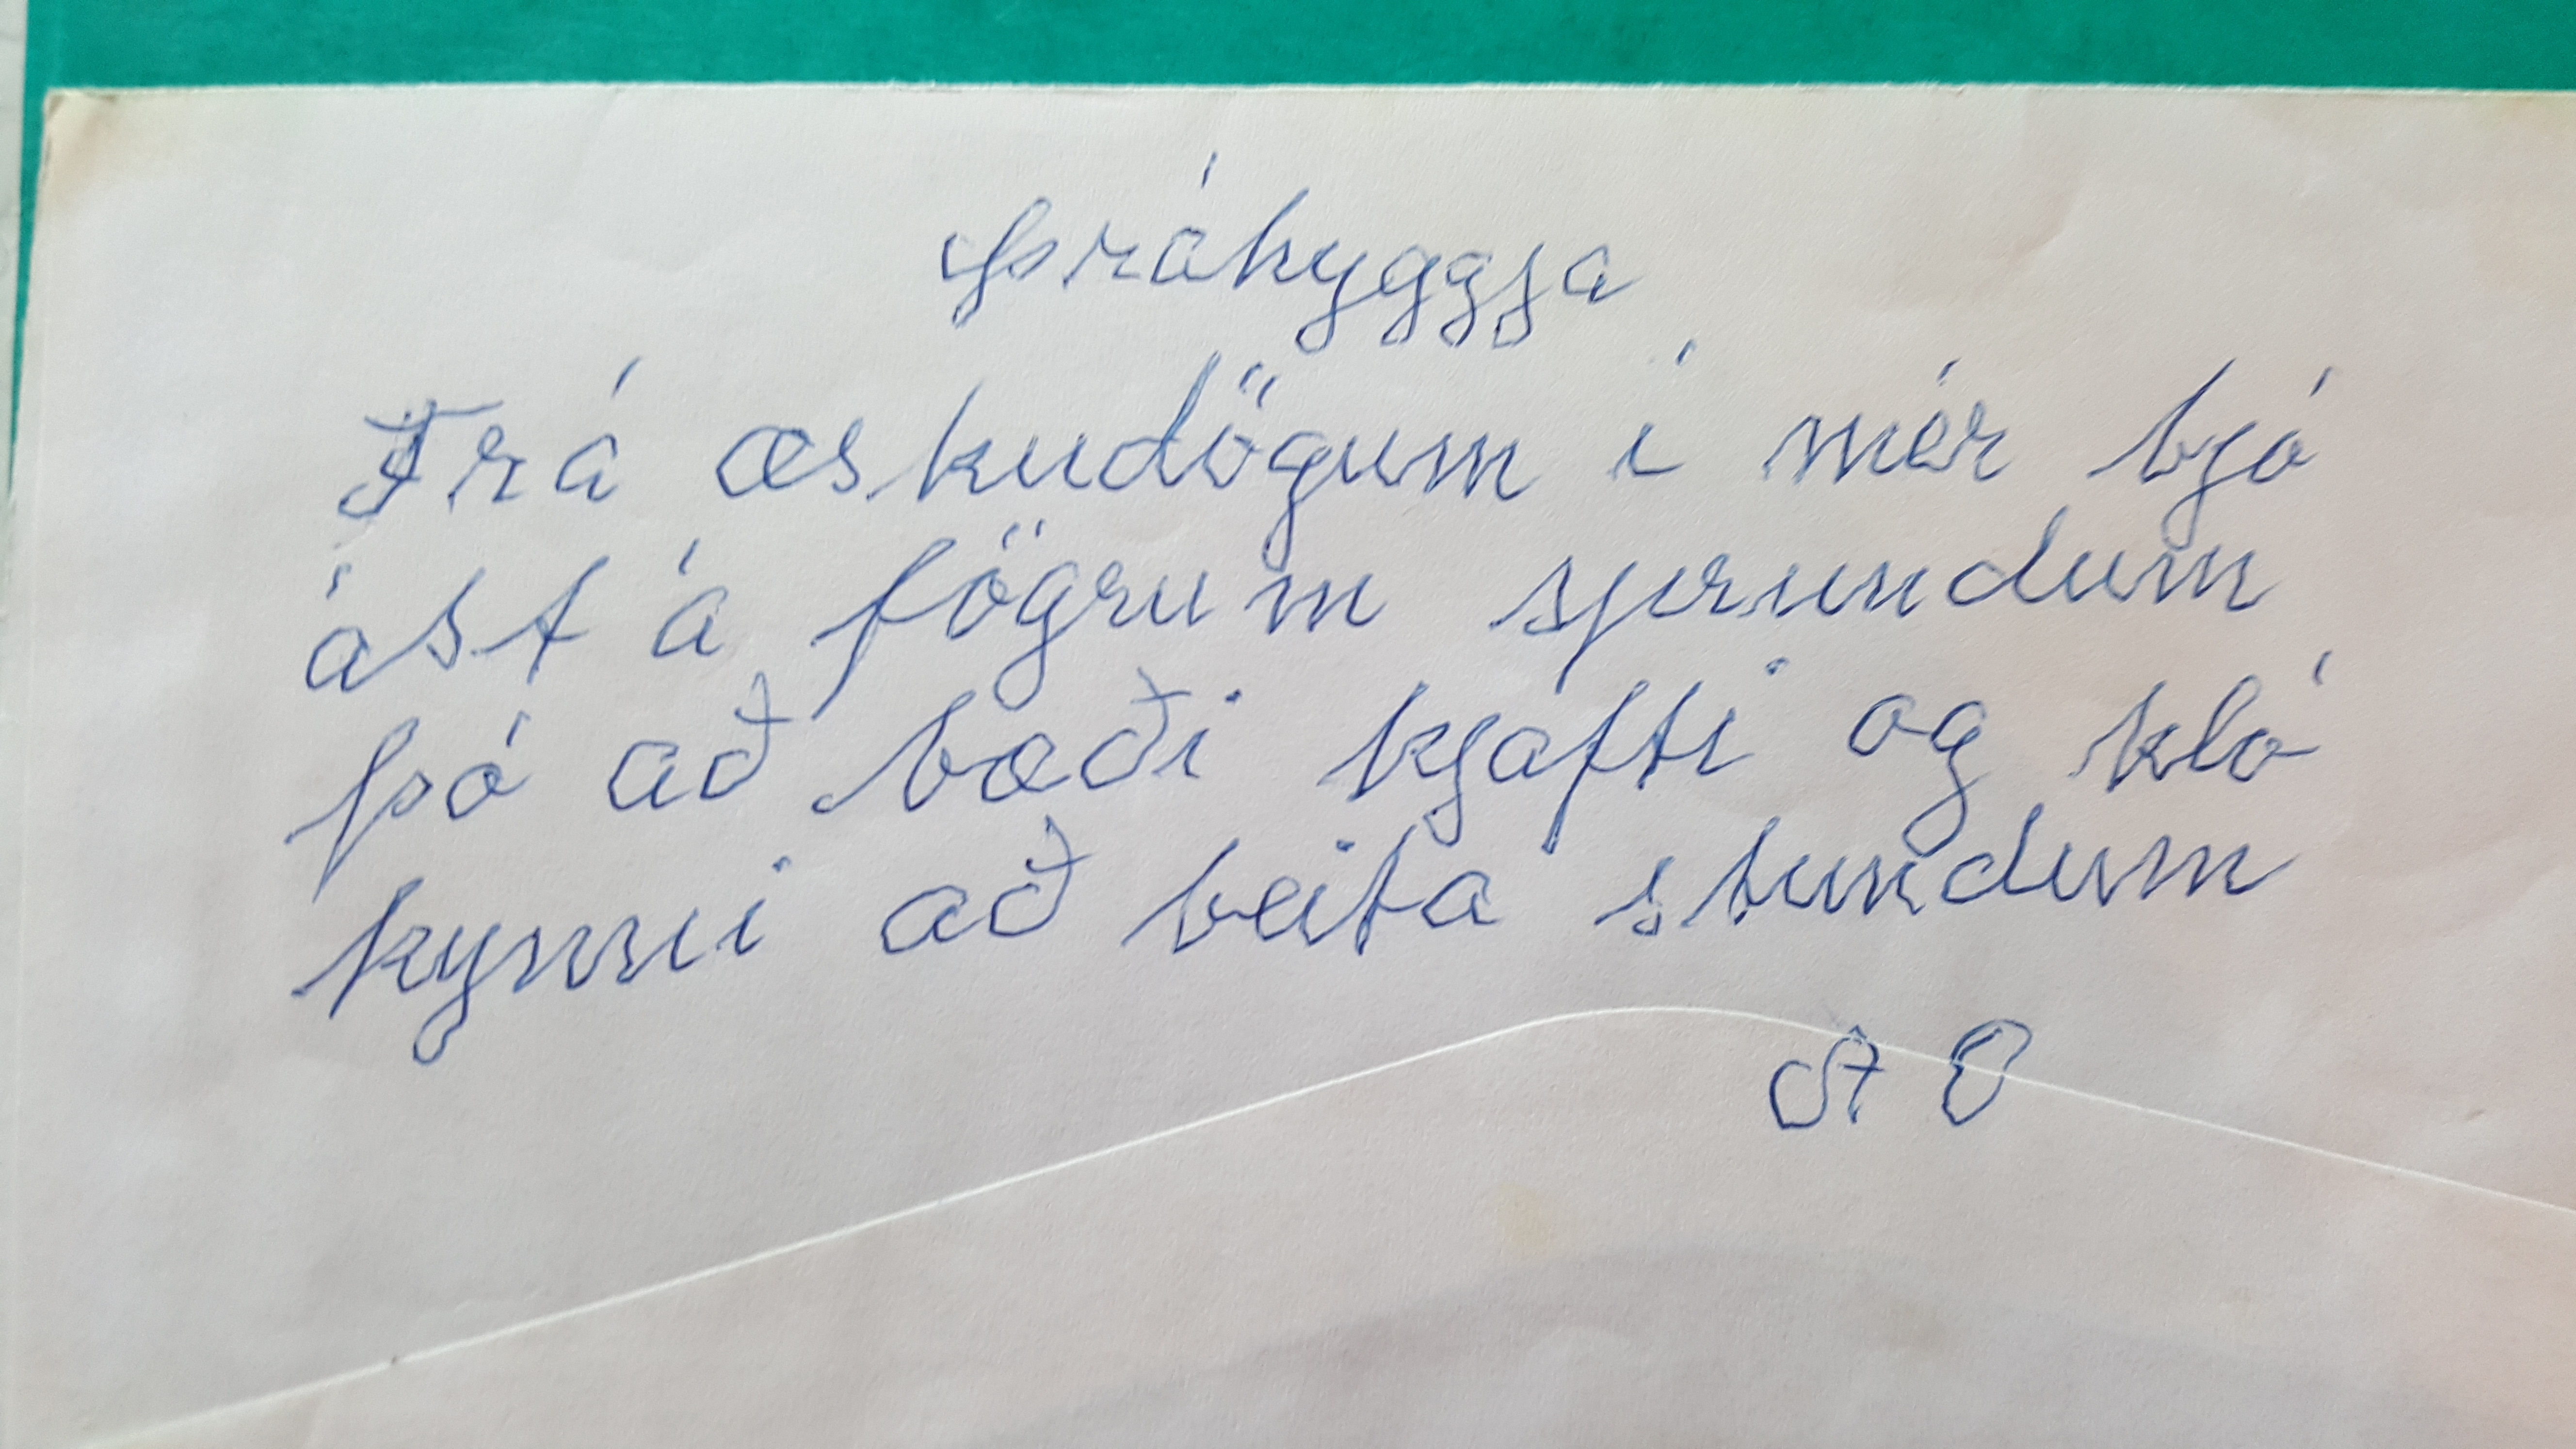 Þráhyggja
Frá æskudögum í mér bjó
ást á fögrum sprundum
þó að bæði kjafti og kló
kynni að beita stundum
A O